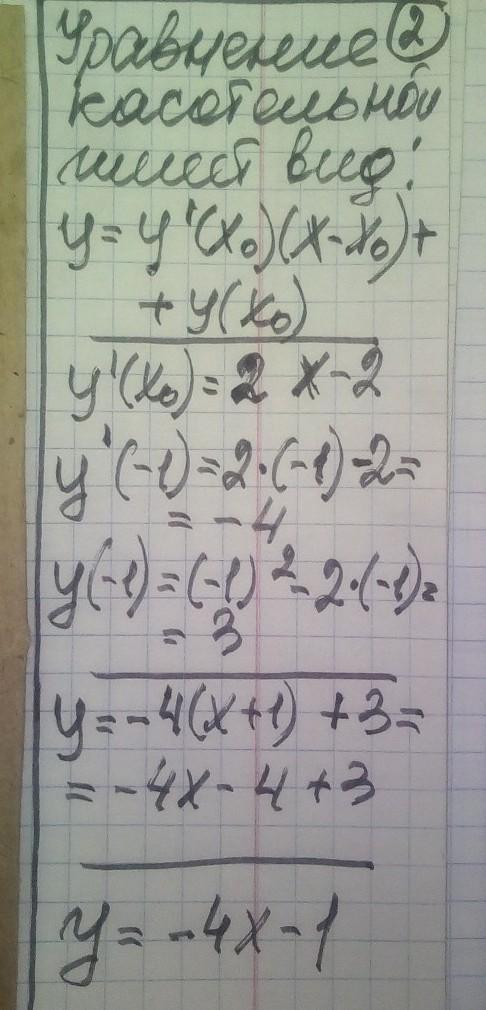 Уравнение ②
касательной
имеет вид:
y = y'(x₀)(x-x₀)+
+ y(x₀)
y'(x₀) = 2 x - 2
y'(-1) = 2·(-1)-2=
= -4
y(-1) = (-1)² - 2·(-1)=
= 3
y = -4(x+1) + 3 =
= -4x - 4 + 3
y = -4x - 1